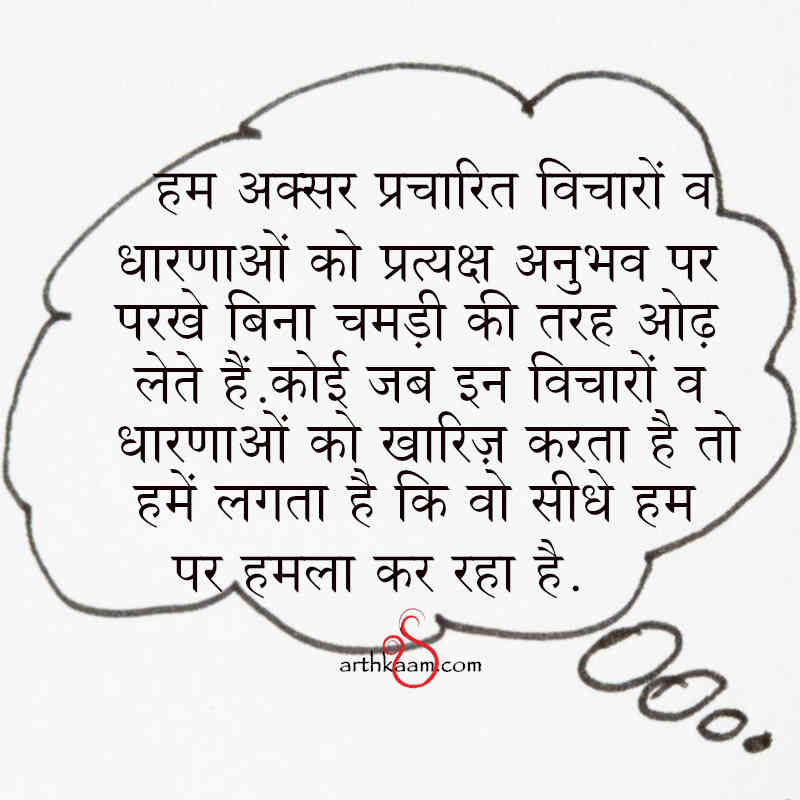 हम अक्सर प्रचारित विचारों व
धारणाओं को प्रत्यक्ष अनुभव पर
परखे बिना चमड़ी की तरह ओढ़
लेते हैं.कोई जब इन विचारों व
धारणाओं को खारिज़ करता है तो
हमें लगता है कि वो सीधे हम
पर हमला कर रहा है.
arthkaam.com